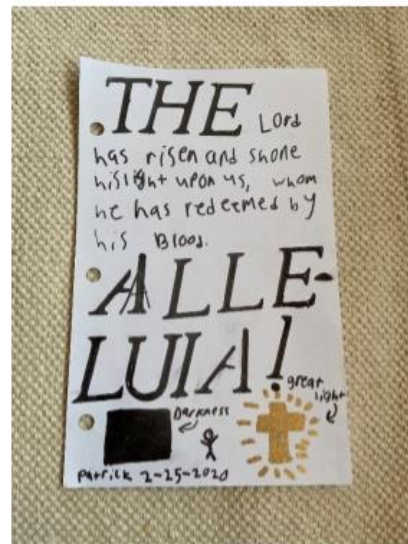 THE Lord
has risen and shone
his light upon us, whom
he has redeemed by
his Blood.
ALLE-
LUIA!
great
light
Darkness
Patrick 2-25-2020